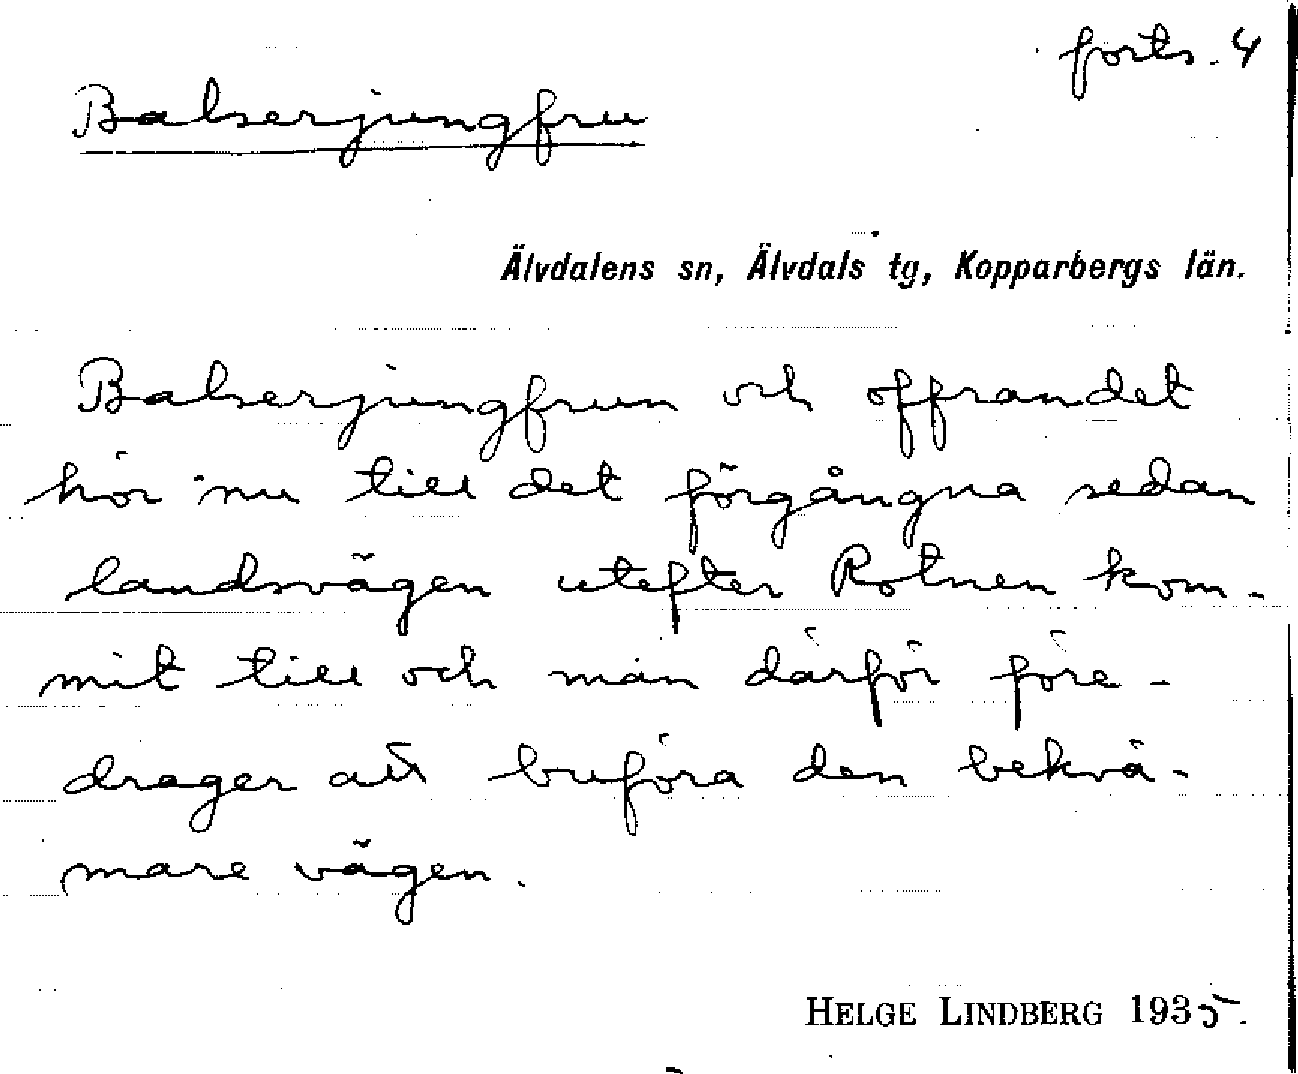 forts. 4
Balserjungfru
Älvdalens sn, Älvdals tg, Kopparbergs län.
Balserjungfrun och offrandet
hör nu till det förgångna sedan
landsvägen utefter Rotnen kom-
mit till och man därför före-
drager att buföra den bekvä-
mare vägen.
HELGE LINDBERG 1935.